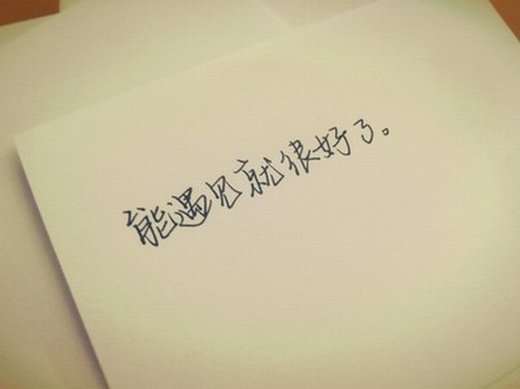 能遇见就很好了。